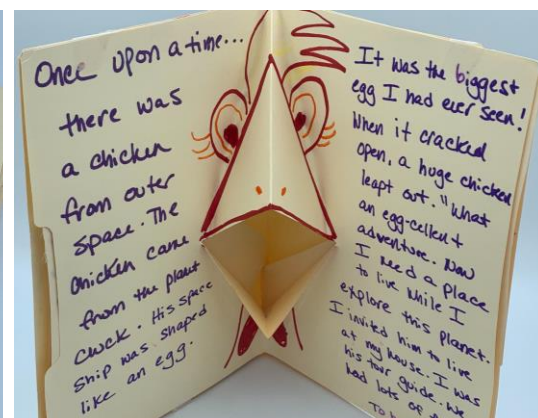 Once upon a time...
there was
a chicken
from outer
space. The
chicken came
from the planet
cluck. His space
ship was shaped
like an egg.
It was the biggest
egg I had ever seen!
When it cracked
open, a huge chicken
leapt out. "What
an egg-cellent
adventure. Now
I need a place
to live while I
explore this planet.
I invited him to live
at my house. I was
his tour guide. We
had lots of